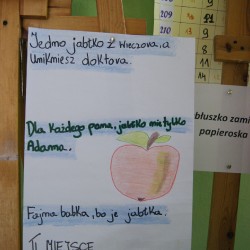 Jedno jabłko z wieczora..a
Unikniesz doktora..
Dla każdego pana, jabłko nie tylko
Adama..
Fajna babka, bo je jabłka.
II MIEJSCE
209
210
211
9
8
11
14
jabłuszko zami
papieroska